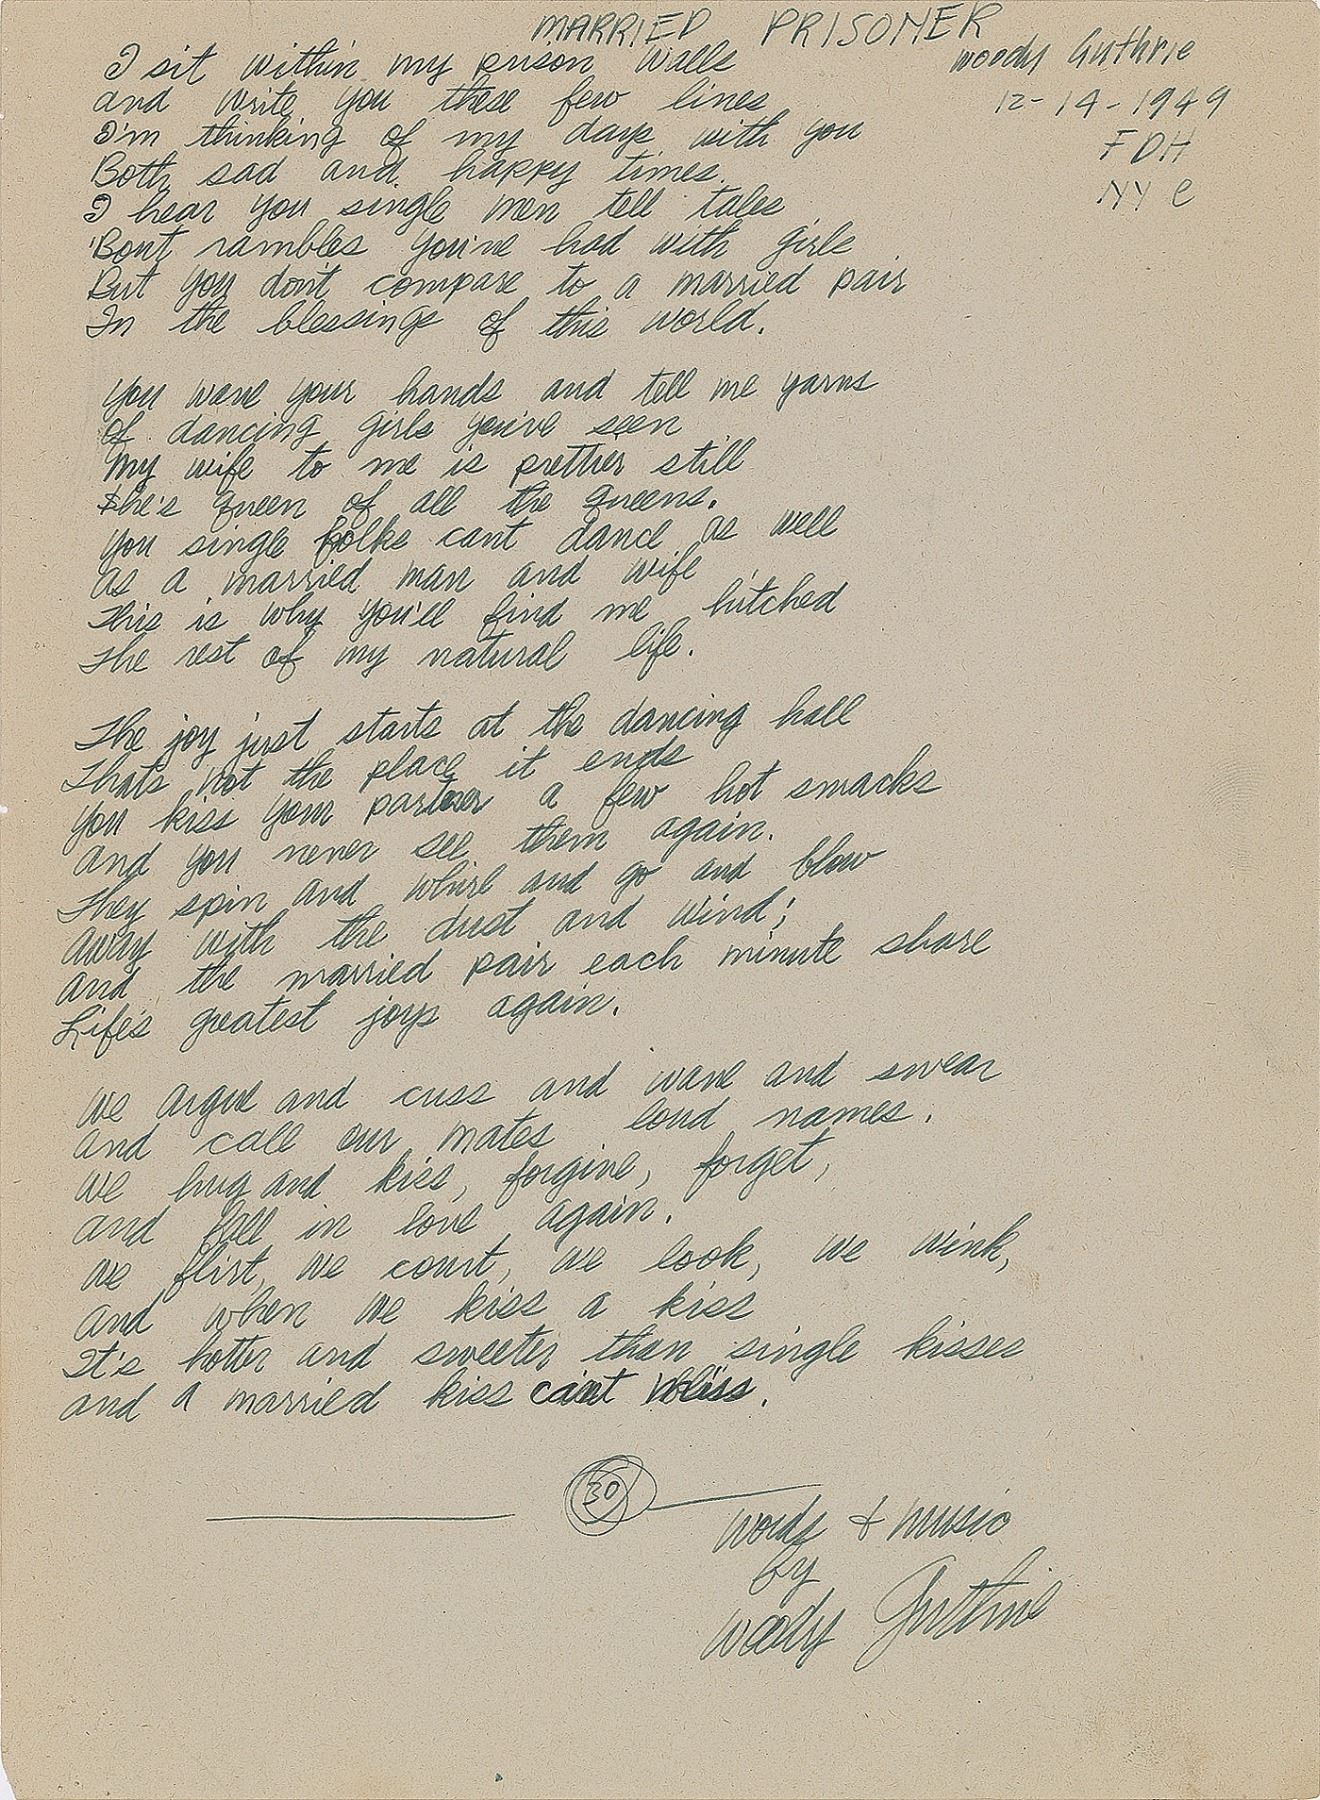 MARRIED PRISONER
Woody Guthrie
12-14-1949
FDH
NYC
I sit within my prison walls
and write you these few lines
I'm thinking of my days with you
Both sad and happy times.
I hear you single men tell tales
'Bout rambles you've had with girls
But you don't compare to a married pair
In the blessings of this world.
You wave your hands and tell me yarns
of dancing girls you've seen
My wife to me is prettier still
She's queen of all the queens.
You single folks cant dance as well
as a married man and wife
This is why you'll find me hitched
The rest of my natural life.
The joy just starts at the dancing hall
Thats not the place it ends
You kiss your partner a few hot smacks
And you never see them again.
They spin and whirl and go and blow
Away with the dust and wind;
And the married pair each minute share
Life's greatest joys again.
We argue and cuss and wave and swear
And call our mates loud names.
We hug and kiss, forgive, forget,
and fall in love again.
We flirt, we court, we look, we wink,
And when we kiss a kiss
It's hotter and sweeter than single kisses
and a married kiss can't
30
Words & music
by
Woody Guthrie